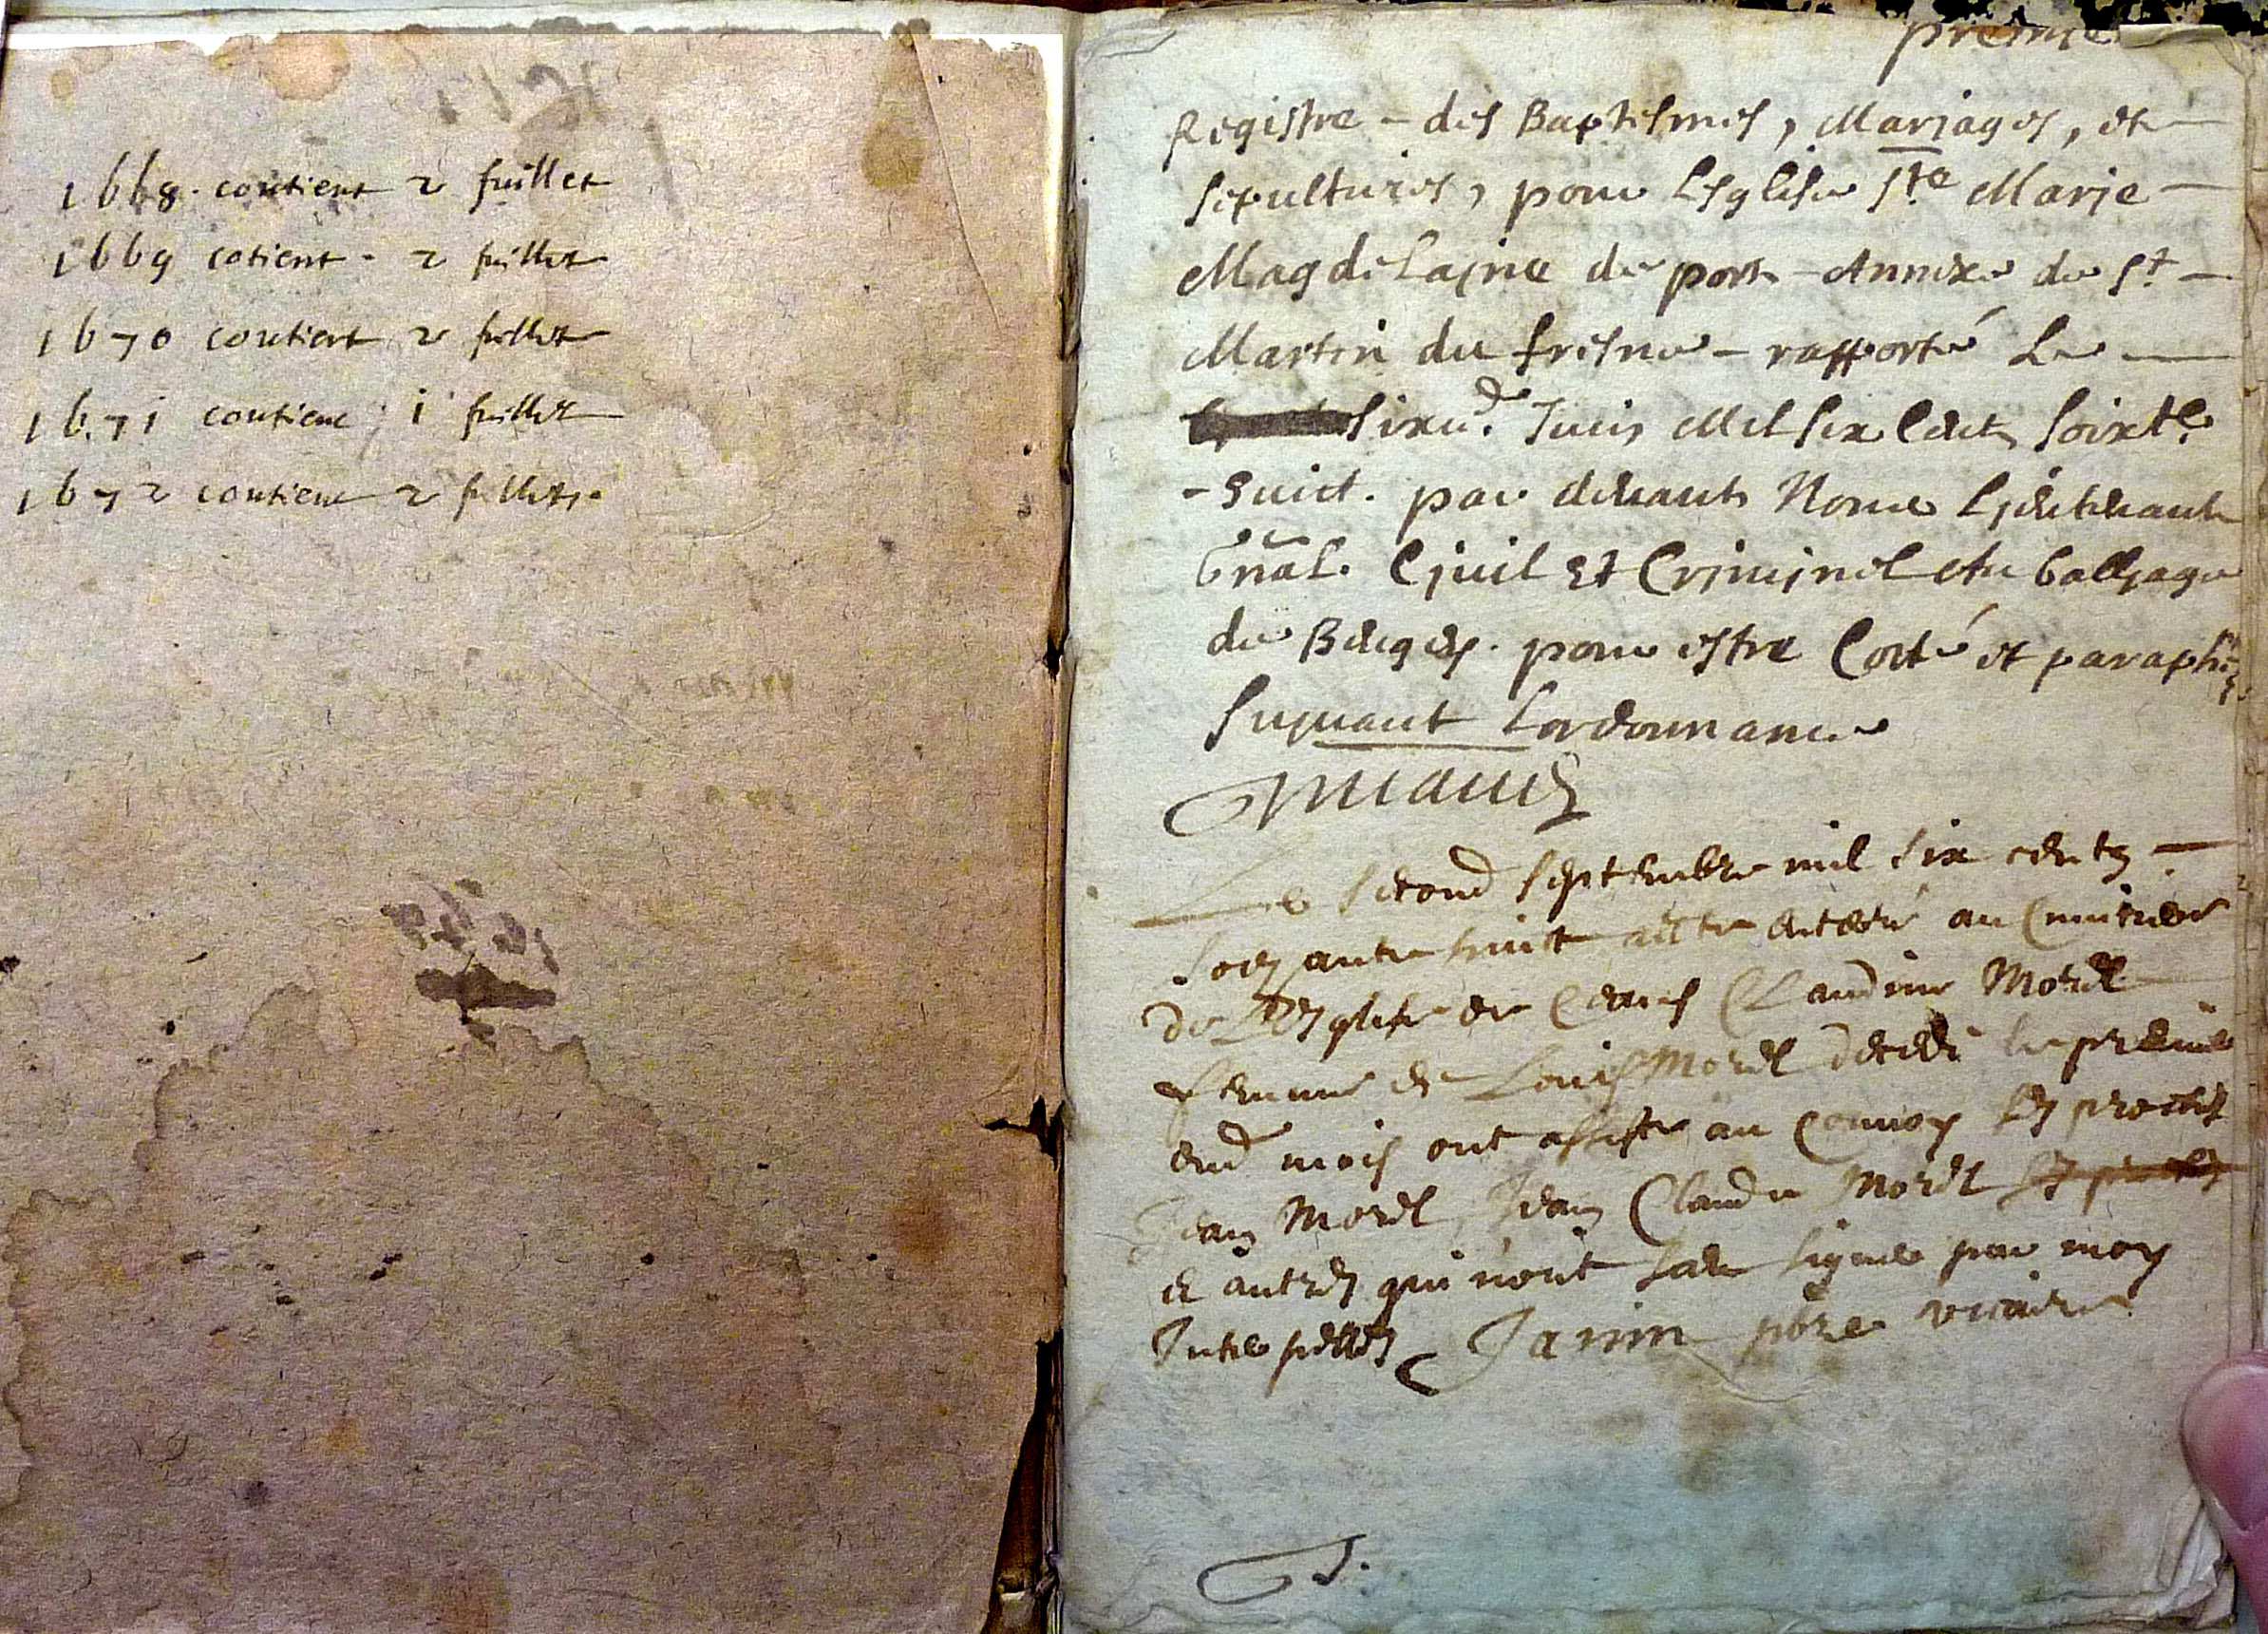 1668. contient 2 fuillet
1669 cotient - 2 fuillet
1670 contient 2 fuillet
1671 contient 1 fuillet
1672 contient 2 fuillets.
premie
Registre - des Baptesmes, Mariages, et -
sepultures, pour Lesglise Ste Marie -
Magdelaine de port - Annexe de St -
Martin du fresne - rapporté Le -
sixe. Juin Mil six Cent soixte
- huict. par devant Nous Lieutenant
Gnal. Civil Et Criminel Au balliage
de Beugey. pour estre Cotté et paraphé
suyvant Lordonnance
Le second septembre mil six centz -
soizante huict este enterré au Cimitiere
de Lesglise de Ceans Claudine Morel
femme de Louis Morel decedé le premie
dud mois ont assisté au Convoy
Jean Morel, Jean Claude Morel
et autres qui n'ont sceu signer par moy
Interpellés Janin pbre vicaire